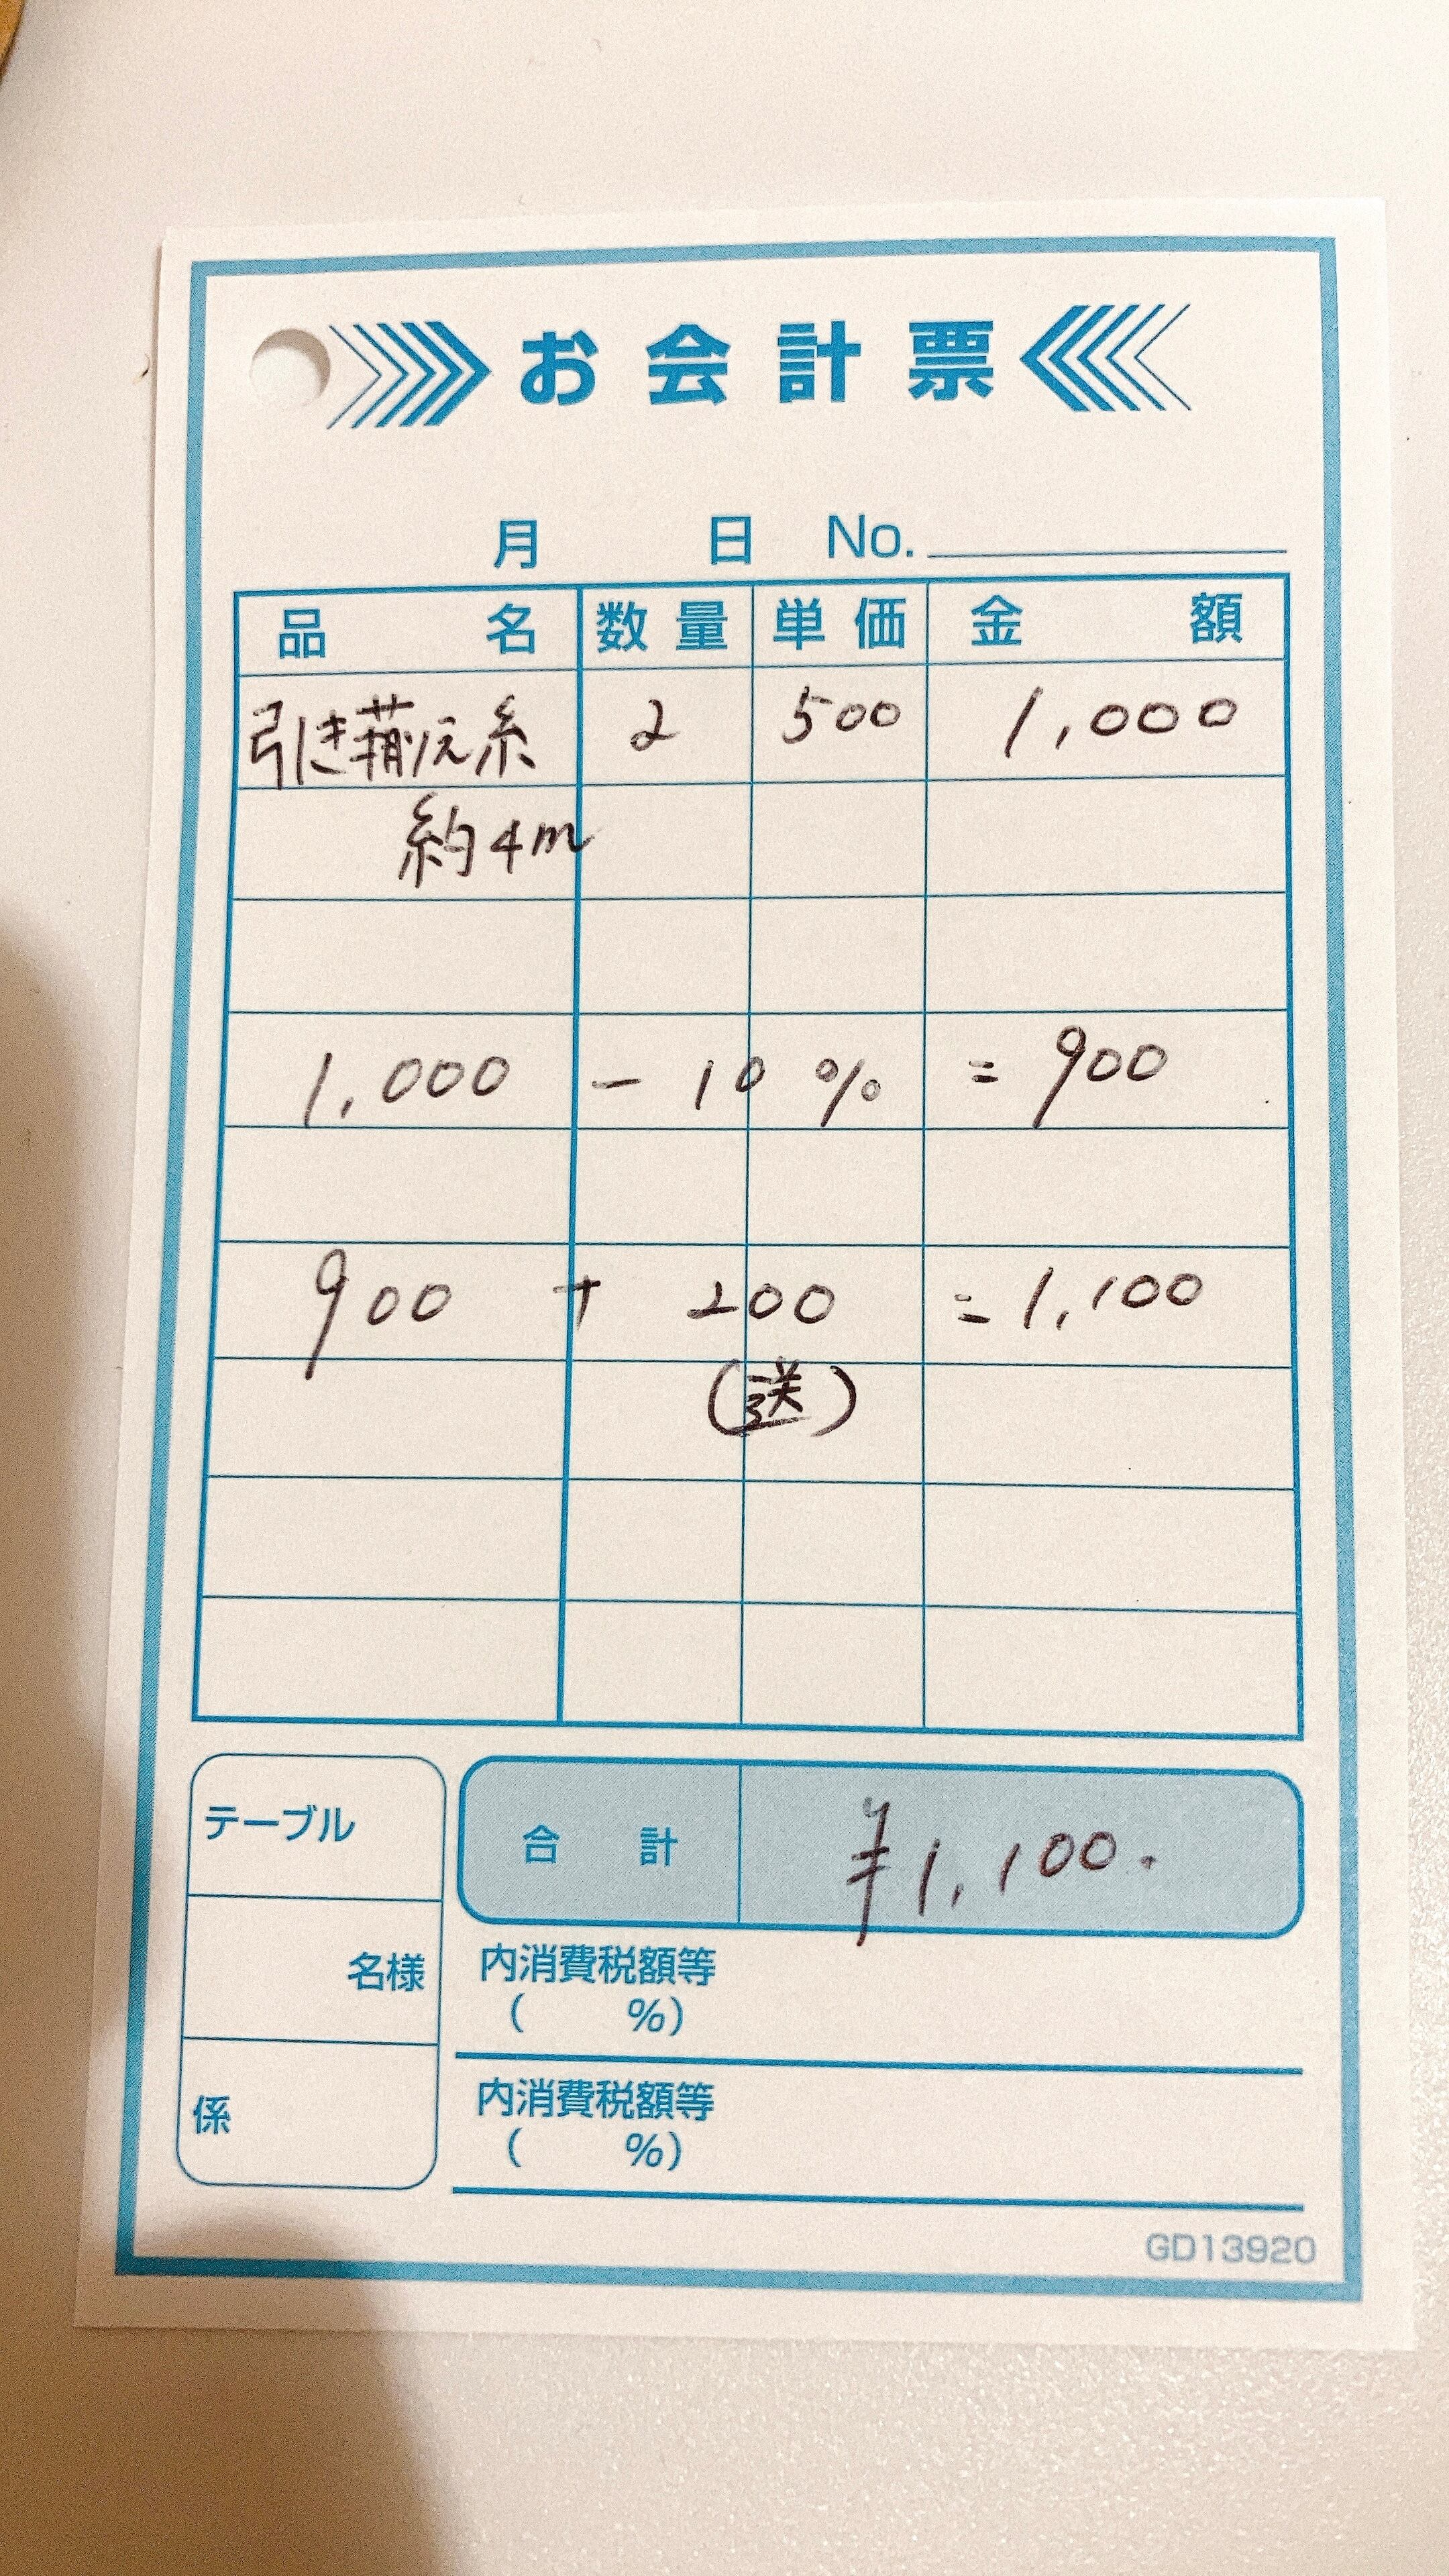 お会計票
月 日 No.
品名 数量 単価 金額
引き揃え糸 2 500 1,000
約4m
1,000 - 10% = 900
900 + 200 = 1,100
(送)
テーブル
合計 ¥1,100.
名様
内消費税額等
( %)
係
内消費税額等
( %)
GD13920